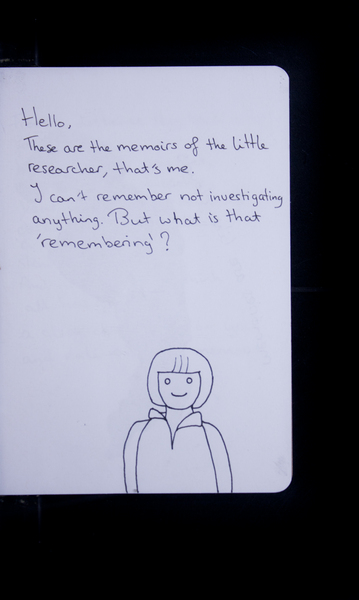 Hello,
These are the memoirs of the little
researcher, that's me.
I can't remember not investigating
anything. But what is that
'remembering'?